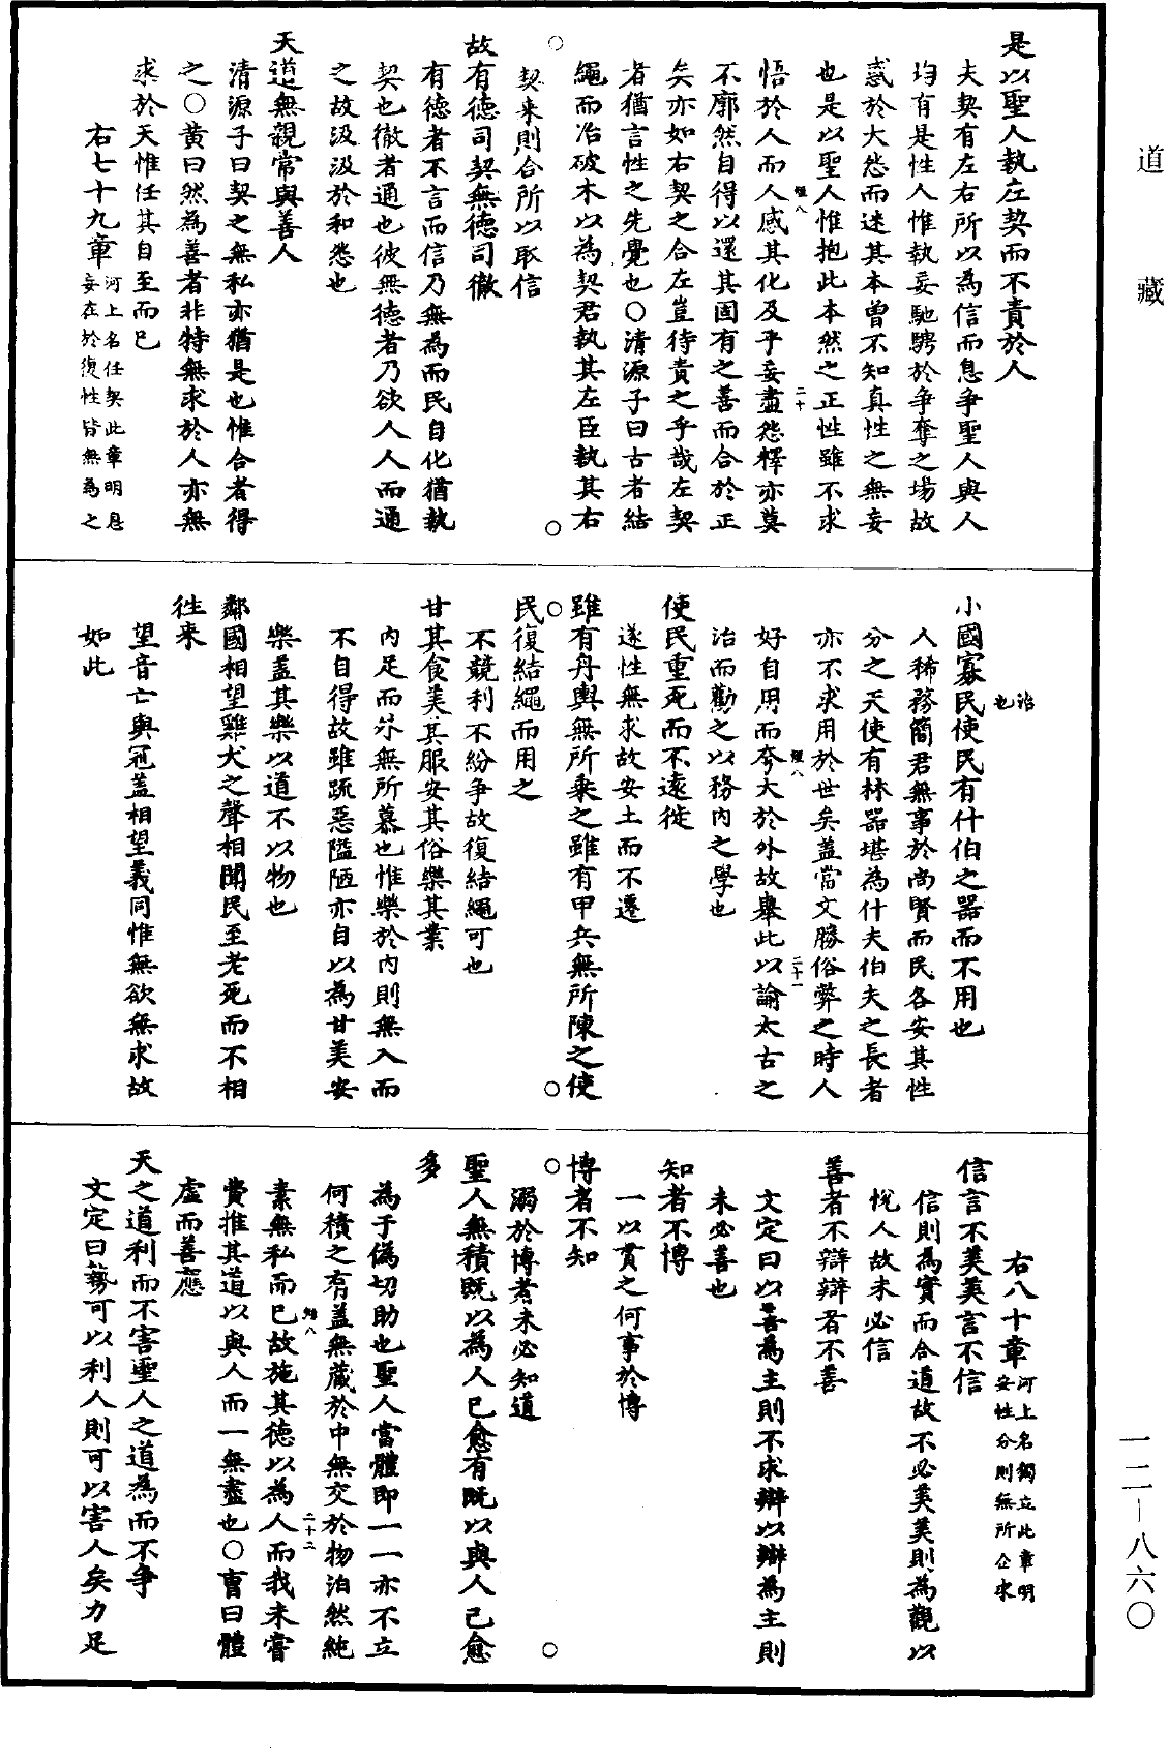 道藏
是以聖人執左契而不責於人
夫契有左右所以為信而息爭聖人與人
均有是性人惟執妄馳騁於爭奪之場故
惑於大怨而迷其本曾不知真性之無妄
也是以聖人惟抱此本然之正性雖不求
悟於人而人感其化及乎妄盡怨釋亦莫
不廓然自得以還其固有之善而合於正
矣亦如右契之合左豈待責之乎哉左契
者猶言性之先覺也○清源子曰古者結
繩而治破木以為契君執其左臣執其右
契来則合所以取信
故有德司契無德司徹
有德者不言而信乃無為而民自化猶執
契也徹者通也彼無德者乃欲人人而通
之故汲汲於和怨也
天道無親常與善人
清源子曰契之無私亦猶是也惟合者得
之○黃曰然為善者非特無求於人亦無
求於天惟任其自至而已
右七十九章河上名任契此章明息
妄在於復性皆無為之
治
也
小國寡民使民有什伯之器而不用也
人稀務簡君無事於尚賢而民各安其性
分之天使有林器堪為什夫伯夫之長者
亦不求用於世矣蓋當文勝俗弊之時人
好自用而夸大於外故舉此以論太古之
治而勸之以務内之學也
使民重死而不遠徙
遂性無求故安土而不遷
雖有舟輿無所乘之雖有甲兵無所陳之使
民復結繩而用之
不競利不紛爭故復結繩可也
甘其食美其服安其俗樂其業
内足而外無所慕也惟樂於内則無入而
不自得故雖疏惡隘陋亦自以為甘美安
樂蓋其樂以道不以物也
鄰國相望雞犬之聲相聞民至老死而不相
徃来
望音亡與冠蓋相望義同惟無欲無求故
如此
右八十章河上名獨立此章明
安性分則無所企求
信言不美美言不信
信則為實而合道故不必美美則為觀以
悅人故未必信
善者不辯辯者不善
文定曰以善為主則不求辯以辯為主則
未必善也
知者不博
一以貫之何事於博
博者不知
溺於博者未必知道
聖人無積既以為人己愈有既以與人己愈
多
為于偽切助也聖人當體即一一亦不立
何積之有蓋無藏於中無交於物泊然純
素無私而已故施其德以為人而我未嘗
費推其道以與人而一無盡也○曺曰體
虛而善應
天之道利而不害聖人之道為而不爭
文定曰藝可以利人則可以害人矣力足
一二—八六〇